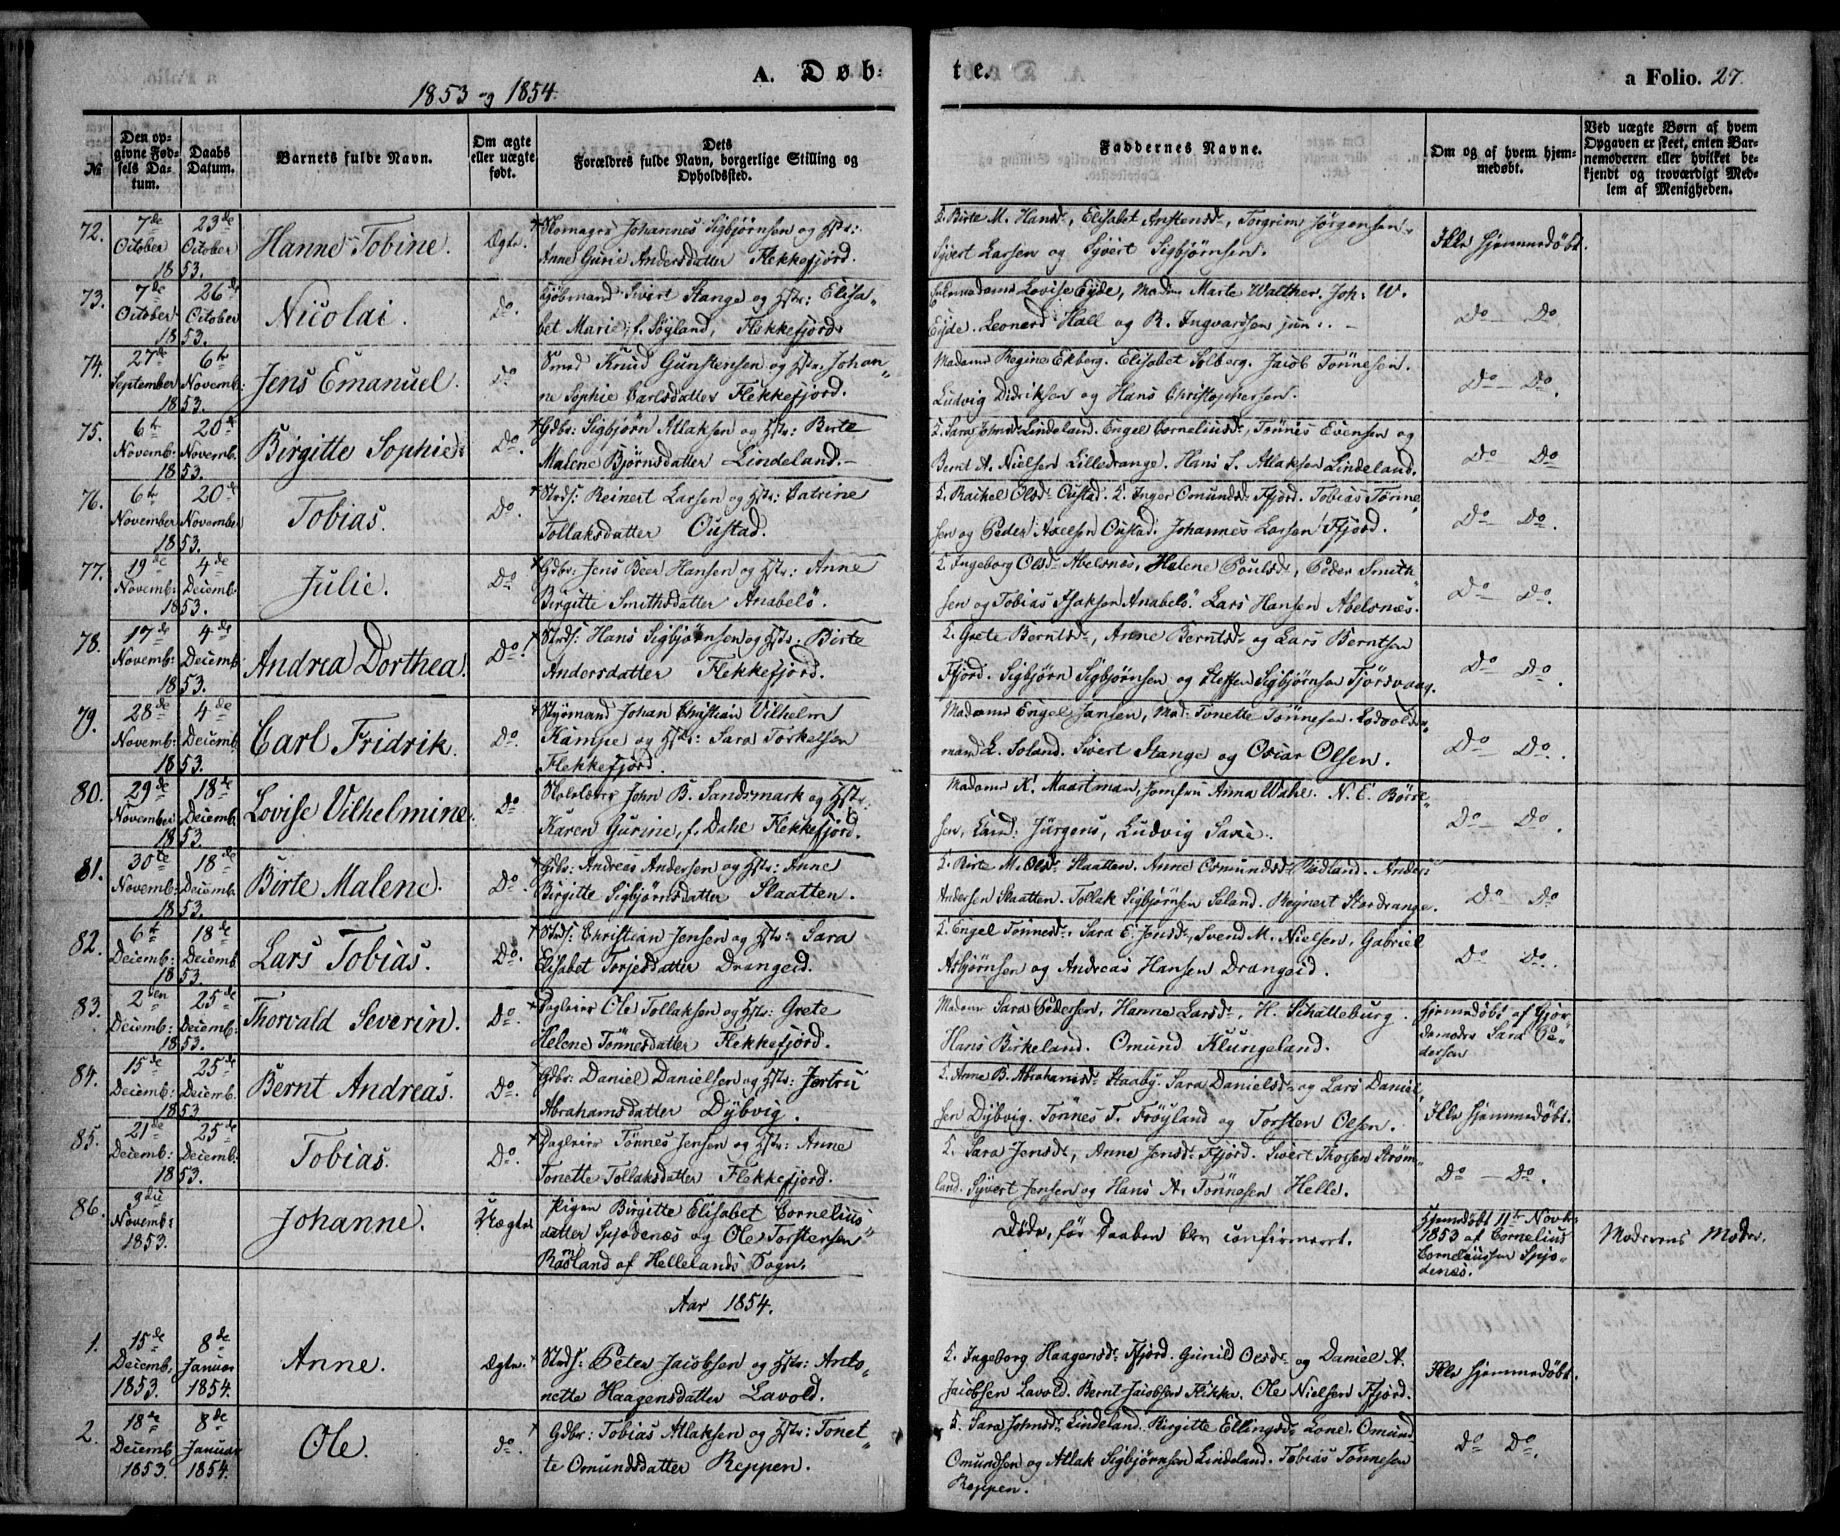 A. Døb-
te.
a Folio. 27.
1853 og 1854.
No
Den op-
givne Fød-
sels Da-
tum.
Daabs
Datum.
Barnets fulde Navn.
Om ægte
eller uægte
født.
Dets
Forældres fulde Navn, borgerlige Stilling og
Opholdssted.
Faddernes Navne.
Om og af hvem hjem-
medøbt.
Ved uægte Børn af hvem
Opgaven er skeet, enten Bar-
nemoderen eller hvilket be-
kjendt og troværdigt Med-
lem af Menigheden.
72. 7de October 1853. 23de October
Hanne Tobine. Ægte.
Skomager Johannes Sigbjørnsen og Hstr:
Anne Gurie Andersdatter Flekkefjord.
Birte M. Hansd:, Elisabet Anstensd:, Torgrim Jørgensen.
Syvert Larsen og Syvert Sigbjørnsen.
Ikke hjemmedøbt.
73. 7de October 1853. 26de October
Nicolai. do.
Kjøbmand Sivert Stange og Hstr: Elisa-
bet Marie, f. Søyland, Flekkefjord.
Madame Lovise Eyde, Madam Marte Walther. Joh: W.
Eyde. Leonerd Hall og R. Ingvardsen jun:.
Do Do.
74. 27de September 1853. 6te Novemb:
Jens Emanuel. do
Smed Knud Gunstensen og Hstr. Johan-
ne Sophie Carlsdatter Flekkefjord.
Madame Regine Ekberg. Elisabet Solberg. Jacob Tønnesen.
Ludvig Didriksen og Hans Christophersen.
Do Do.
75. 6te Novemb: 1853. 20de Novemb.
Birgitte Sophie. Do.
Gdbr: Sigbjørn Atlaksen og Hstr: Birte
Malene Bjørnsdatter Lindeland.
Sara Johnsd: Lindeland. Engel Corneliusd:, Tønnes Evensen og
Bernt A. Nielsen Lilledrange. Hans S. Atlaksen Lindeland.
Do Do
76. 6te November 1853. 20de November
Tobias. Do.
Strds: Reinert Larsen og Hstr: Catrine
Tollaksdatter Oustad.
Rachel Olsd: Oustad. Inger Omundsd: Ffjord. Tobias Tønne-
sen og Peder Axelsen Oustad. Johannes Larsen Ffjord.
Do Do.
77. 19de Novemb: 1853. 4de Decemb.
Julie. Do
Gdbr: Jens Beer Hansen og Hstr: Anne
Birgitte Smithsdatter Anabelø.
Ingeborg Olsd: Abelsnæs, Helene Poulsd:, Peder Smith-
sen og Tobias Isaksen Anabelø. Lars Hansen Abelsnæs.
Do Do.
78. 17de Novemb: 1853. 4de Decemb:
Andrea Dorthea. Do.
Strds: Hans Sigbjørnsen og Hstr: Birte
Andersdatter Flekkefjord.
Grete Berntsd:, Anne Berntsd: og Lars Berntsen
Ffjord. Sigbjørn Sigbjørnsen og Steffen Sigbjørnsen Tjørsvaag.
Do Do.
79. 28de Novemb: 1853. 4de Decemb.
Carl Fridrik. Do.
Styrmand Johan Christian Vilhelm
Kampe og Hstr: Sara Torkelsen
Flekkefjord.
Madame Engel Jansen, Mad: Tonette Tønnesen.
mand L. Soland. Sivert Stange og Oscar Olsen.
Do Do.
80. 29de November 1853. 18de Decemb.
Lovise Vilhelmine. Do
Skolelærer John B. Sandsmark og Hstr:
Karen Gurine, f. Dahl Flekkefjord.
Madame K. Maartman, Jomfru Anna Wahl. N. E. Børre-
sen, Cand: Jürgens, Ludvig Saxe.
Do Do.
81. 30te Novemb: 1853. 18de Decemb:
Birte Malene. Do.
Gdbr: Andreas Andersen og Hstr: Anne
Birgitte Sigbjørnsdatter Slaatten.
Birte M. Olsd: Slaatten. Anne Omundsd: Modland. Anders
Andersen Slaatten. Tollak Sigbjørnsen Seland. Reinert Stordrange.
Do Do
82. 6te Decemb: 1853. 18de Decemb.
Lars Tobias. Do.
Strds: Christian Jensen og Hstr: Sara
Elisabet Torjesdatter Drangeid.
Engel Tønnesd:. Sara E. Jensd:, Svend M. Nielsen, Gabriel
Asbjørnsen og Andreas Hansen Drangeid.
Do Do.
83. 2den Decemb: 1853. 25de Decemb:
Thorvald Severin. Do.
Dagleier Ole Tollaksen og Hstr: Grete
Helene Tønnesdatter Flekkefjord.
Madame Sara Pedersen, Hanne Larsd:, H. Schatteburg.
Hans Birkeland. Omund Klungeland.
Hjemmedøbt af Gjor-
demoder Sara Pe-
dersen
84. 15de Decemb: 1853 25de Decemb.
Bernt Andreas. Do.
Gdbr: Daniel Danielsen og Hstr: Jortru
Abrahamsdatter Dybvig.
Anne B. Abrahamsd: Staaby. Sara Danielsd: og Lars Daniel-
sen Dybvig. Tønnes T. Frøyland og Torsten Olsen.
Ikke hjemmedøbt.
85. 21de Decemb: 1853. 25de Decemb:
Tobias. Do.
Dagleier Tønnes Jensen og Hstr: Anne
Tonette Tollaksdatter Flekkefjord.
Sara Jensd:, Anne Jensd: Ffjord. Sivert Thorsen Strøm-
land. Syvert Jensen og Hans A. Tønnesen Helle.
Do Do.
86. 9de Novemb: 1853.
Johanne. Uægte
Pigen Birgitte Elisabet Cornelius-
datter Spjodenæs og Ole Torstensen
Rasland af Hellelands Sogn.
Døde, før Daaben blev confirmeret.
Hjemmedøbt 11te Novb:
1853 af Cornelius
Corneliussen Spjo-
denæs.
Moderens Moder.
Aar 1854.
1. 15de Decemb. 1853. 8de Januar 1854.
Anne. Ægte.
Strds: Peter Jacobsen og Hstr: Anto-
nette Haagensdatter Lavold.
Ingeborg Haagensd: Ffjord. Gunild Olsd: og Daniel A.
Jacobsen Lavold. Bernt Jacobsen Flikke. Ole Nielsen Ffjord.
Ikke hjemmedøbt.
2. 18de Decemb. 1853. 8de Januar 1854.
Ole. do.
Gdbr: Tobias Atlaksen og Hstr: Tonet-
te Omundsdatter Reppen.
Sara Johnsd: Lindeland. Birgitte Ellingsd: Lone. Omund
Omundsen og Atlak Sigbjørnsen Lindeland. Tobias Tønnesen
Reppen.
Do Do.